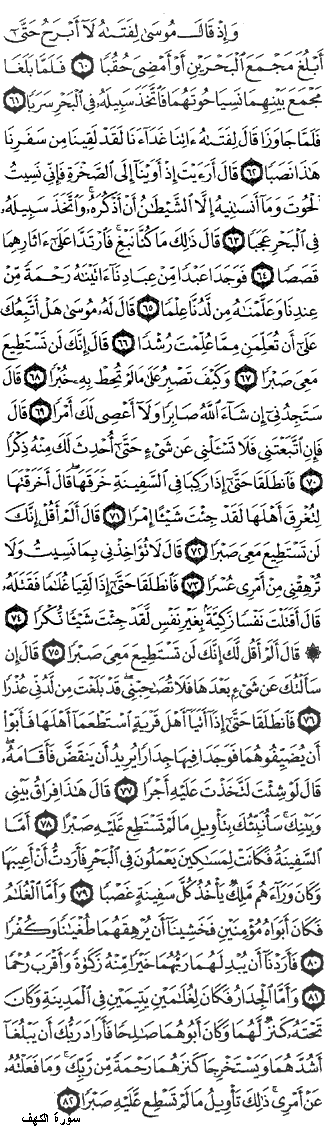 وَإِذْ قَالَ مُوسَىٰ لِفَتَىٰهُ لَآ أَبْرَحُ حَتَّىٰٓ
أَبْلُغَ مَجْمَعَ الْبَحْرَيْنِ أَوْ أَمْضِيَ حُقُبًا ٦٠ فَلَمَّا بَلَغَا
مَجْمَعَ بَيْنِهِمَا نَسِيَا حُوتَهُمَا فَاتَّخَذَ سَبِيلَهُ فِي الْبَحْرِ سَرَبًا ٦١
فَلَمَّا جَاوَزَا قَالَ لِفَتَىٰهُ ءَاتِنَا غَدَآءَنَا لَقَدْ لَقِينَا مِن سَفَرِنَا
هَٰذَا نَصَبًا ٦٢ قَالَ أَرَءَيْتَ إِذْ أَوَيْنَآ إِلَى الصَّخْرَةِ فَإِنِّي نَسِيتُ
الْحُوتَ وَمَآ أَنسَىٰنِيهُ إِلَّا الشَّيْطَٰنُ أَنْ أَذْكُرَهُۥ وَاتَّخَذَ سَبِيلَهُۥ
فِي الْبَحْرِ عَجَبًا ٦٣ قَالَ ذَٰلِكَ مَا كُنَّا نَبْغِ فَارْتَدَّا عَلَىٰٓ ءَاثَارِهِمَا
قَصَصًا ٦٤ فَوَجَدَا عَبْدًا مِّنْ عِبَادِنَآ ءَاتَيْنَٰهُ رَحْمَةً مِّنْ
عِندِنَا وَعَلَّمْنَٰهُ مِن لَّدُنَّا عِلْمًا ٦٥ قَالَ لَهُۥ مُوسَىٰ هَلْ أَتَّبِعُكَ
عَلَىٰٓ أَن تُعَلِّمَنِ مِمَّا عُلِّمْتَ رُشْدًا ٦٦ قَالَ إِنَّكَ لَن تَسْتَطِيعَ
مَعِيَ صَبْرًا ٦٧ وَكَيْفَ تَصْبِرُ عَلَىٰ مَا لَمْ تُحِطْ بِهِۦ خُبْرًا ٦٨ قَالَ
سَتَجِدُنِيٓ إِن شَآءَ اللَّهُ صَابِرًا وَلَآ أَعْصِي لَكَ أَمْرًا ٦٩ قَالَ
فَإِنِ اتَّبَعْتَنِي فَلَا تَسْـَٔلْنِي عَن شَيْءٍ حَتَّىٰٓ أُحْدِثَ لَكَ مِنْهُ ذِكْرًا
٧٠ فَانطَلَقَا حَتَّىٰٓ إِذَا رَكِبَا فِي السَّفِينَةِ خَرَقَهَا قَالَ أَخَرَقْتَهَا
لِتُغْرِقَ أَهْلَهَا لَقَدْ جِئْتَ شَيْـًٔا إِمْرًا ٧١ قَالَ أَلَمْ أَقُلْ إِنَّكَ
لَن تَسْتَطِيعَ مَعِيَ صَبْرًا ٧٢ قَالَ لَا تُؤَاخِذْنِي بِمَا نَسِيتُ وَلَا
تُرْهِقْنِي مِنْ أَمْرِي عُسْرًا ٧٣ فَانطَلَقَا حَتَّىٰٓ إِذَا لَقِيَا غُلَٰمًا فَقَتَلَهُۥ
قَالَ أَقَتَلْتَ نَفْسًا زَكِيَّةً بِغَيْرِ نَفْسٍ لَّقَدْ جِئْتَ شَيْـًٔا نُّكْرًا ٧٤
۞ قَالَ أَلَمْ أَقُل لَّكَ إِنَّكَ لَن تَسْتَطِيعَ مَعِيَ صَبْرًا ٧٥ قَالَ إِن
سَأَلْتُكَ عَن شَيْءٍ بَعْدَهَا فَلَا تُصَٰحِبْنِي قَدْ بَلَغْتَ مِن لَّدُنِّي عُذْرًا
٧٦ فَانطَلَقَا حَتَّىٰٓ إِذَآ أَتَيَآ أَهْلَ قَرْيَةٍ اسْتَطْعَمَآ أَهْلَهَا فَأَبَوْا
أَن يُضَيِّفُوهُمَا فَوَجَدَا فِيهَا جِدَارًا يُرِيدُ أَن يَنقَضَّ فَأَقَامَهُۥ
قَالَ لَوْ شِئْتَ لَتَّخَذْتَ عَلَيْهِ أَجْرًا ٧٧ قَالَ هَٰذَا فِرَاقُ بَيْنِي
وَبَيْنِكَ سَأُنَبِّئُكَ بِتَأْوِيلِ مَا لَمْ تَسْتَطِع عَّلَيْهِ صَبْرًا ٧٨ أَمَّا
السَّفِينَةُ فَكَانَتْ لِمَسَٰكِينَ يَعْمَلُونَ فِي الْبَحْرِ فَأَرَدتُّ أَنْ أَعِيبَهَا
وَكَانَ وَرَآءَهُم مَّلِكٌ يَأْخُذُ كُلَّ سَفِينَةٍ غَصْبًا ٧٩ وَأَمَّا الْغُلَٰمُ
فَكَانَ أَبَوَاهُ مُؤْمِنَيْنِ فَخَشِينَآ أَن يُرْهِقَهُمَا طُغْيَٰنًا وَكُفْرًا
٨٠ فَأَرَدْنَآ أَن يُبْدِلَهُمَا رَبُّهُمَا خَيْرًا مِّنْهُ زَكَوٰةً وَأَقْرَبَ رُحْمًا
٨١ وَأَمَّا الْجِدَارُ فَكَانَ لِغُلَٰمَيْنِ يَتِيمَيْنِ فِي الْمَدِينَةِ وَكَانَ
تَحْتَهُۥ كَنزٌ لَّهُمَا وَكَانَ أَبُوهُمَا صَٰلِحًا فَأَرَادَ رَبُّكَ أَن يَبْلُغَآ
أَشُدَّهُمَا وَيَسْتَخْرِجَا كَنزَهُمَا رَحْمَةً مِّن رَّبِّكَ وَمَا فَعَلْتُهُۥ
عَنْ أَمْرِي ذَٰلِكَ تَأْوِيلُ مَا لَمْ تَسْطِع عَّلَيْهِ صَبْرًا ٨٢
سورة الكهف